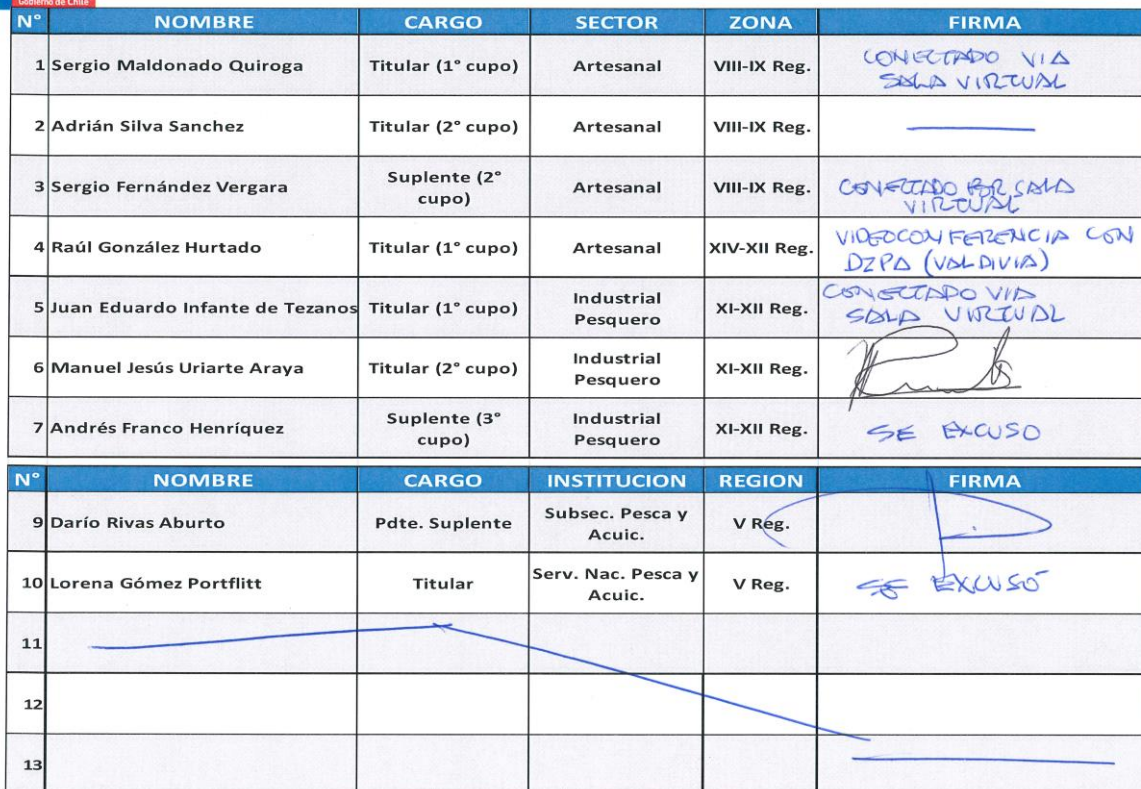 Gobierno de Chile
N° NOMBRE CARGO SECTOR ZONA FIRMA
1 Sergio Maldonado Quiroga Titular (1° cupo) Artesanal VIII-IX Reg. CONECTADO VIA
SALA VIRTUAL
2 Adrián Silva Sanchez Titular (2° cupo) Artesanal VIII-IX Reg.
3 Sergio Fernández Vergara Suplente (2°
cupo) Artesanal VIII-IX Reg. CONECTADO POR SALA
VIRTUAL
4 Raúl González Hurtado Titular (1° cupo) Artesanal XIV-XII Reg. VIDEOCONFERENCIA CON
DZPA (VALDIVIA)
5 Juan Eduardo Infante de Tezanos Titular (1° cupo) Industrial
Pesquero XI-XII Reg. CONECTADO VIA
SALA VIRTUAL
6 Manuel Jesús Uriarte Araya Titular (2° cupo) Industrial
Pesquero XI-XII Reg.
7 Andrés Franco Henríquez Suplente (3°
cupo) Industrial
Pesquero XI-XII Reg. SE EXCUSO
N° NOMBRE CARGO INSTITUCION REGION FIRMA
9 Darío Rivas Aburto Pdte. Suplente Subsec. Pesca y
Acuic. V Reg.
10 Lorena Gómez Portflitt Titular Serv. Nac. Pesca y
Acuic. V Reg. SE EXCUSÓ
11
12
13